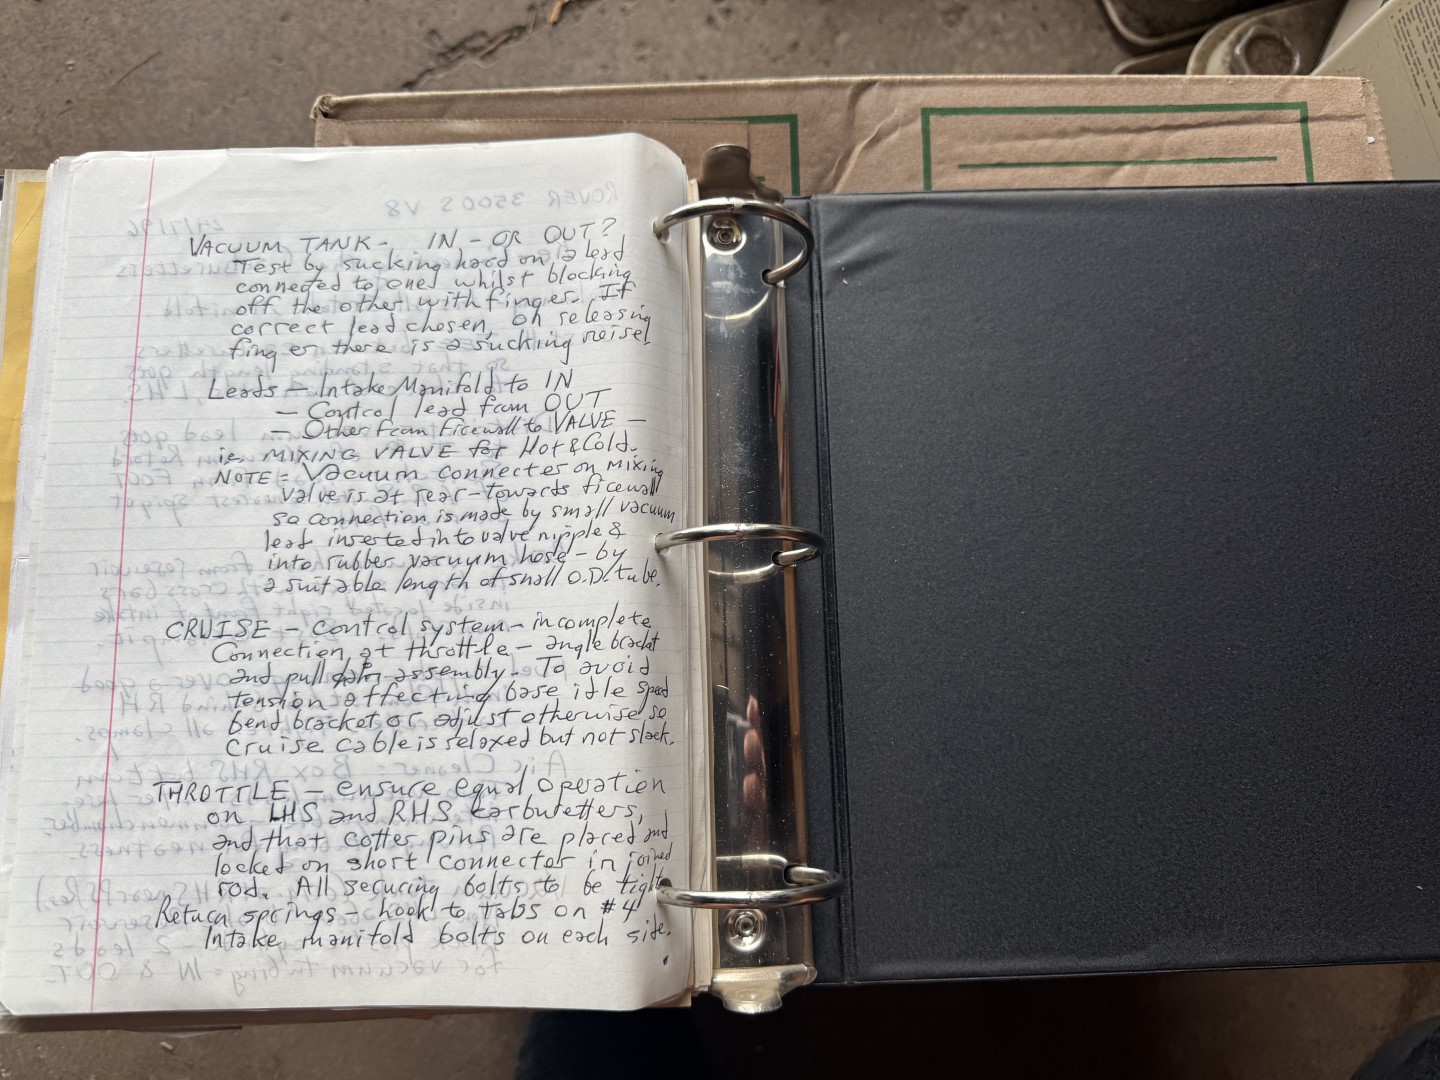 VACUUM TANK - IN - OR OUT?
Test by sucking hard on a lead
connected to one! whilst blocking
off the other with finger. If
correct lead chosen, on releasing
finger there is a sucking noise!
Leads - Intake Manifold to IN
- Control lead from OUT
- Other from Firewall to VALVE -
ie. MIXING VALVE for Hot & Cold.
NOTE = Vacuum connecter on mixing
valve is at rear - towards firewall
so connection is made by small vacuum
lead inserted into valve nipple &
into rubber vacuum hose - by
a suitable length of small O.D. tube.
CRUISE - Control system - incomplete
Connection at throttle - angle bracket
and pull assembly. To avoid
tension affecting base idle speed
bend bracket or adjust otherwise so
cruise cable is relaxed but not slack.
THROTTLE - ensure equal operation
on LHS and RHS carburetters,
and that cotter pins are placed and
locked on short connector in joined
rod. All securing bolts to be tight
Return springs - hook to tabs on #4
Intake manifold bolts on each side.